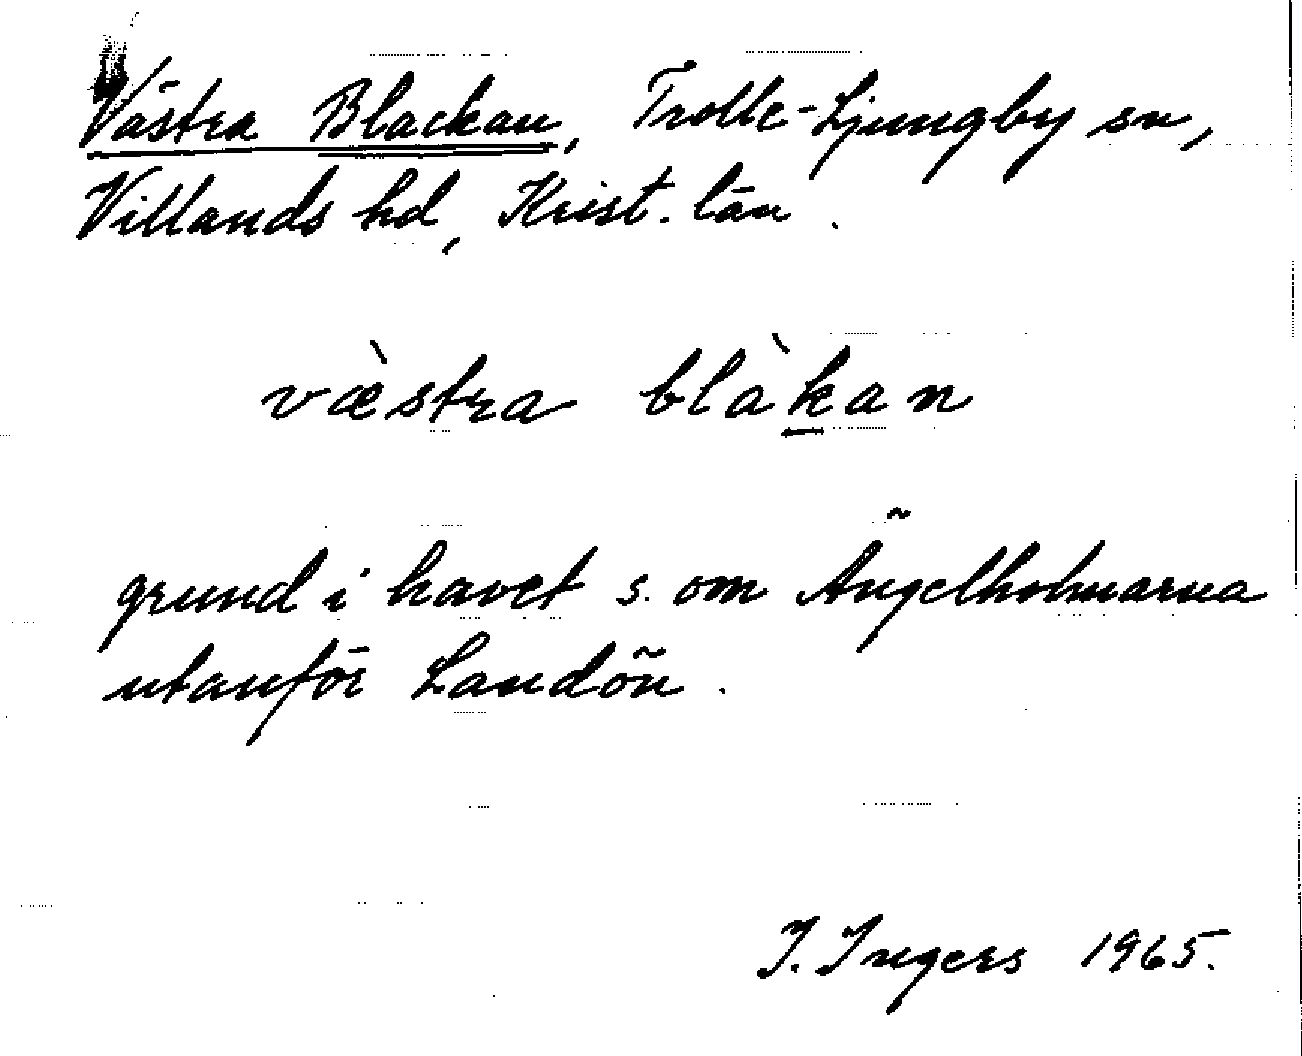 Västra Blackan, Trolle-Ljungby sn,
Villands hd, Krist. län.
væ̀stra blàk̲an
grund i havet s. om Ängelholmarna
utanför Landön.
I. Ingers 1965.